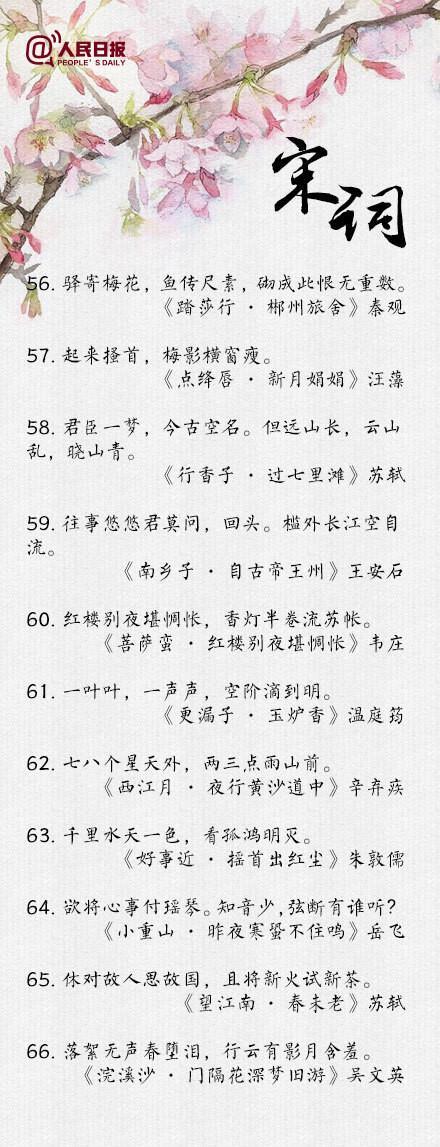 @人民日报
PEOPLE'S DAILY
宋词
56. 驿寄梅花，鱼传尺素，砌成此恨无重数。
《踏莎行 · 郴州旅舍》秦观
57. 起来搔首，梅影横窗瘦。
《点绛唇 · 新月娟娟》汪藻
58. 君臣一梦，今古空名。但远山长，云山
乱，晓山青。
《行香子 · 过七里滩》苏轼
59. 往事悠悠君莫问，回头。槛外长江空自
流。
《南乡子 · 自古帝王州》王安石
60. 红楼别夜堪惆怅，香灯半卷流苏帐。
《菩萨蛮 · 红楼别夜堪惆怅》韦庄
61. 一叶叶，一声声，空阶滴到明。
《更漏子 · 玉炉香》温庭筠
62. 七八个星天外，两三点雨山前。
《西江月 · 夜行黄沙道中》辛弃疾
63. 千里水天一色，看孤鸿明灭。
《好事近 · 摇首出红尘》朱敦儒
64. 欲将心事付瑶琴。知音少,弦断有谁听?
《小重山 · 昨夜寒蛩不住鸣》岳飞
65. 休对故人思故国，且将新火试新茶。
《望江南 · 春未老》苏轼
66. 落絮无声春堕泪，行云有影月含羞。
《浣溪沙 · 门隔花深梦旧游》吴文英